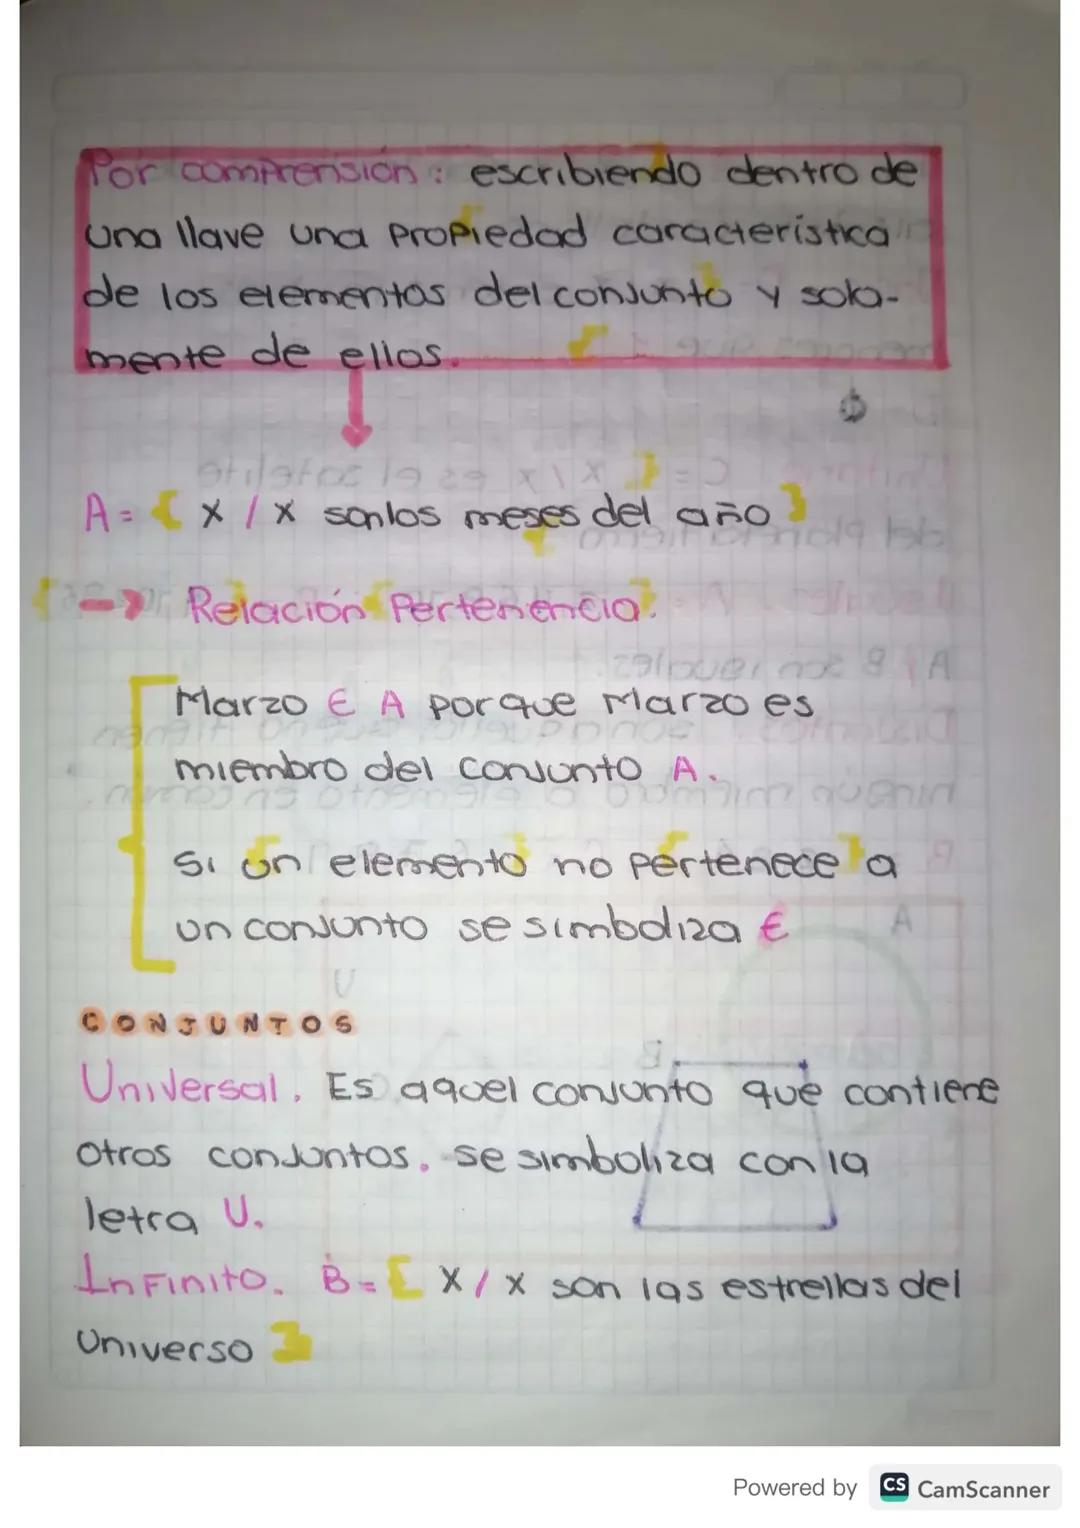 Por comprensión: escribiendo dentro de
una llave una propiedad característica
de los elementos del conjunto y sola-
mente de ellos.
A = { x / x son los meses del año }
→ Relación Pertenencia.
Marzo ∈ A porque Marzo es
miembro del conjunto A.
Si un elemento no pertenece a
un conjunto se simboliza ∈
CONJUNTOS
Universal. Es aquel conjunto que contiene
otros conjuntos. se simboliza con la
letra U.
Infinito. B = { x / x son las estrellas del
Universo }
Powered by CS CamScanner